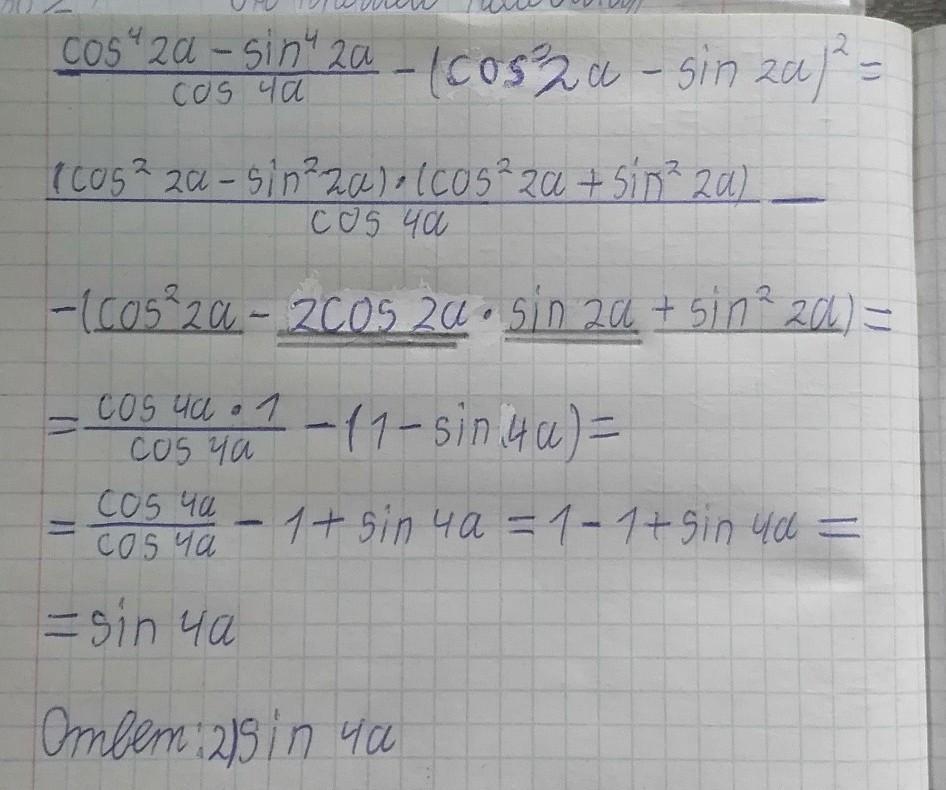 cos⁴ 2a − sin⁴ 2a
cos 4a
− (cos² 2a − sin 2a)² =
(cos² 2a − sin² 2a) · (cos² 2a + sin² 2a)
cos 4a
—
−(cos² 2a − 2cos 2a · sin 2a + sin² 2a) =
= cos 4a · 1
cos 4a
− (1 − sin 4a) =
= cos 4a
cos 4a
− 1 + sin 4a = 1 − 1 + sin 4a =
= sin 4a
Ответ: 2) sin 4a